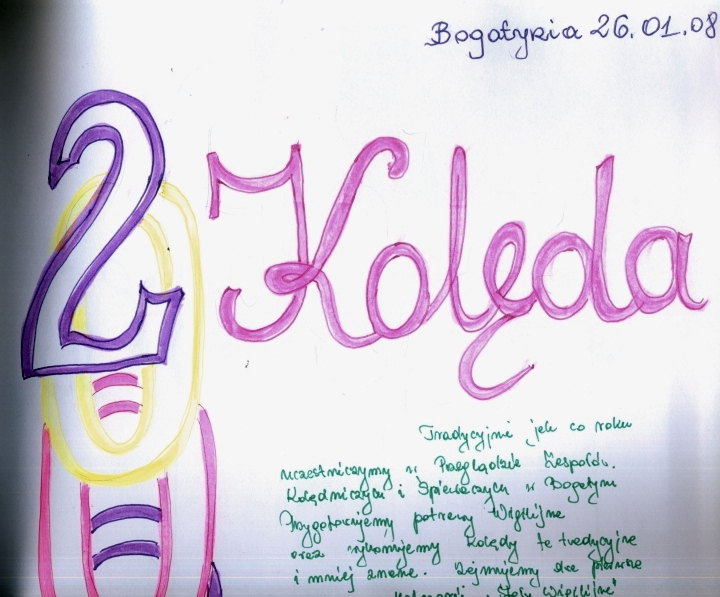 Bogatynia 26.01.08
2
Kolęda
Tradycyjnie jak co roku
uczestniczymy w Przeglądzie Zespołów
Kolędniczych i Śpiewaczych w Bogatyni
Przygotowujemy potrawy Wigilijne
oraz wykonujemy kolędy te tradycyjne
i mniej znane. Zajmujemy dwa pierwsze
"Stoły Wigilijne"